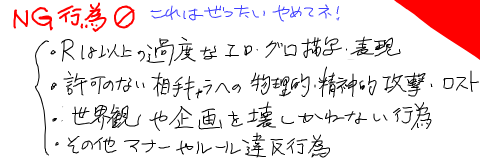 NG行為 これはぜったいやめてネ!
・R18以上の過度なエロ・グロ描写・表現
・許可のない相手キャラへの物理的・精神的攻撃・ロスト
・世界観や企画を壊しかねない行為
・その他マナーやルール違反行為